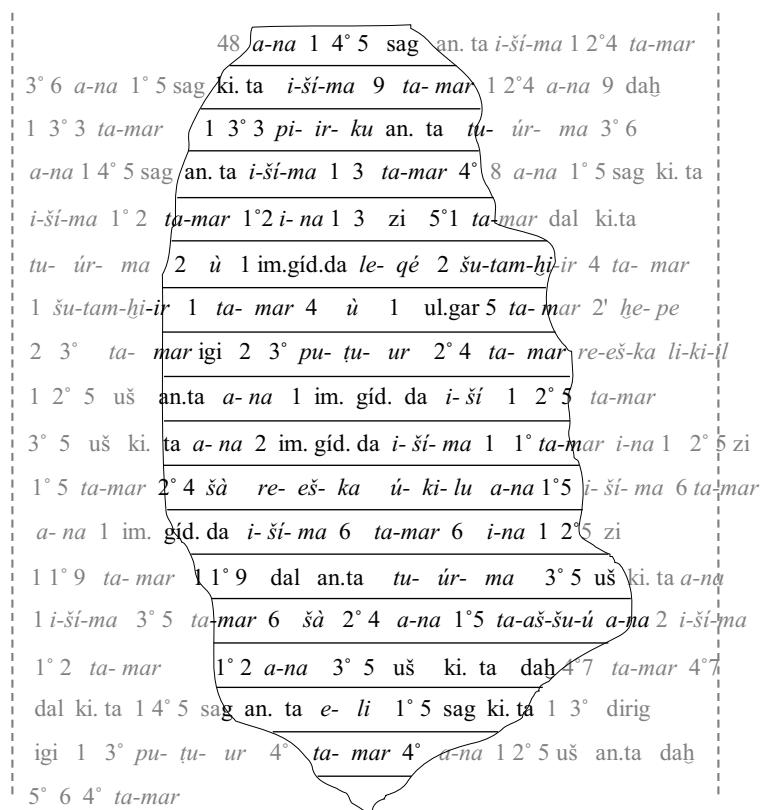 48 a-na 1 4° 5 sag an. ta i-ší-ma 1 2°4 ta-mar
3° 6 a-na 1° 5 sag ki. ta i-ší-ma 9 ta- mar 1 2°4 a-na 9 daḫ
1 3° 3 ta-mar 1 3° 3 pi- ir- ku an. ta tu- úr- ma 3° 6
a-na 1 4° 5 sag an. ta i-ší-ma 1 3 ta-mar 4° 8 a-na 1° 5 sag ki. ta
i-ší-ma 1° 2 ta-mar 1°2 i- na 1 3 zi 5°1 ta-mar dal ki.ta
tu- úr- ma 2 ù 1 im.gíd.da le- qé 2 šu-tam-ḫi-ir 4 ta- mar
1 šu-tam-ḫi-ir 1 ta- mar 4 ù 1 ul.gar 5 ta- mar 2' ḫe- pe
2 3° ta- mar igi 2 3° pu- ṭu- ur 2° 4 ta- mar re-eš-ka li-ki-il
1 2° 5 uš an.ta a- na 1 im. gíd. da i- ší 1 2° 5 ta-mar
3° 5 uš ki. ta a- na 2 im. gíd. da i- ší- ma 1 1° ta-mar i-na 1 2° 5 zi
1° 5 ta-mar 2° 4 šà re- eš- ka ú- ki- lu a-na 1°5 i- ší- ma 6 ta-mar
a- na 1 im. gíd. da i- ší- ma 6 ta-mar 6 i-na 1 2°5 zi
1 1° 9 ta- mar 1 1° 9 dal an.ta tu- úr- ma 3° 5 uš ki. ta a-na
1 i-ší-ma 3° 5 ta-mar 6 šà 2° 4 a-na 1°5 ta-aš-šu-ú a-na 2 i-ší-ma
1° 2 ta- mar 1° 2 a-na 3° 5 uš ki. ta daḫ 4°7 ta-mar 4°7
dal ki. ta 1 4° 5 sag an. ta e- li 1° 5 sag ki. ta 1 3° dirig
igi 1 3° pu- ṭu- ur 4° ta- mar 4° a-na 1 2° 5 uš an.ta daḫ
5° 6 4° ta-mar